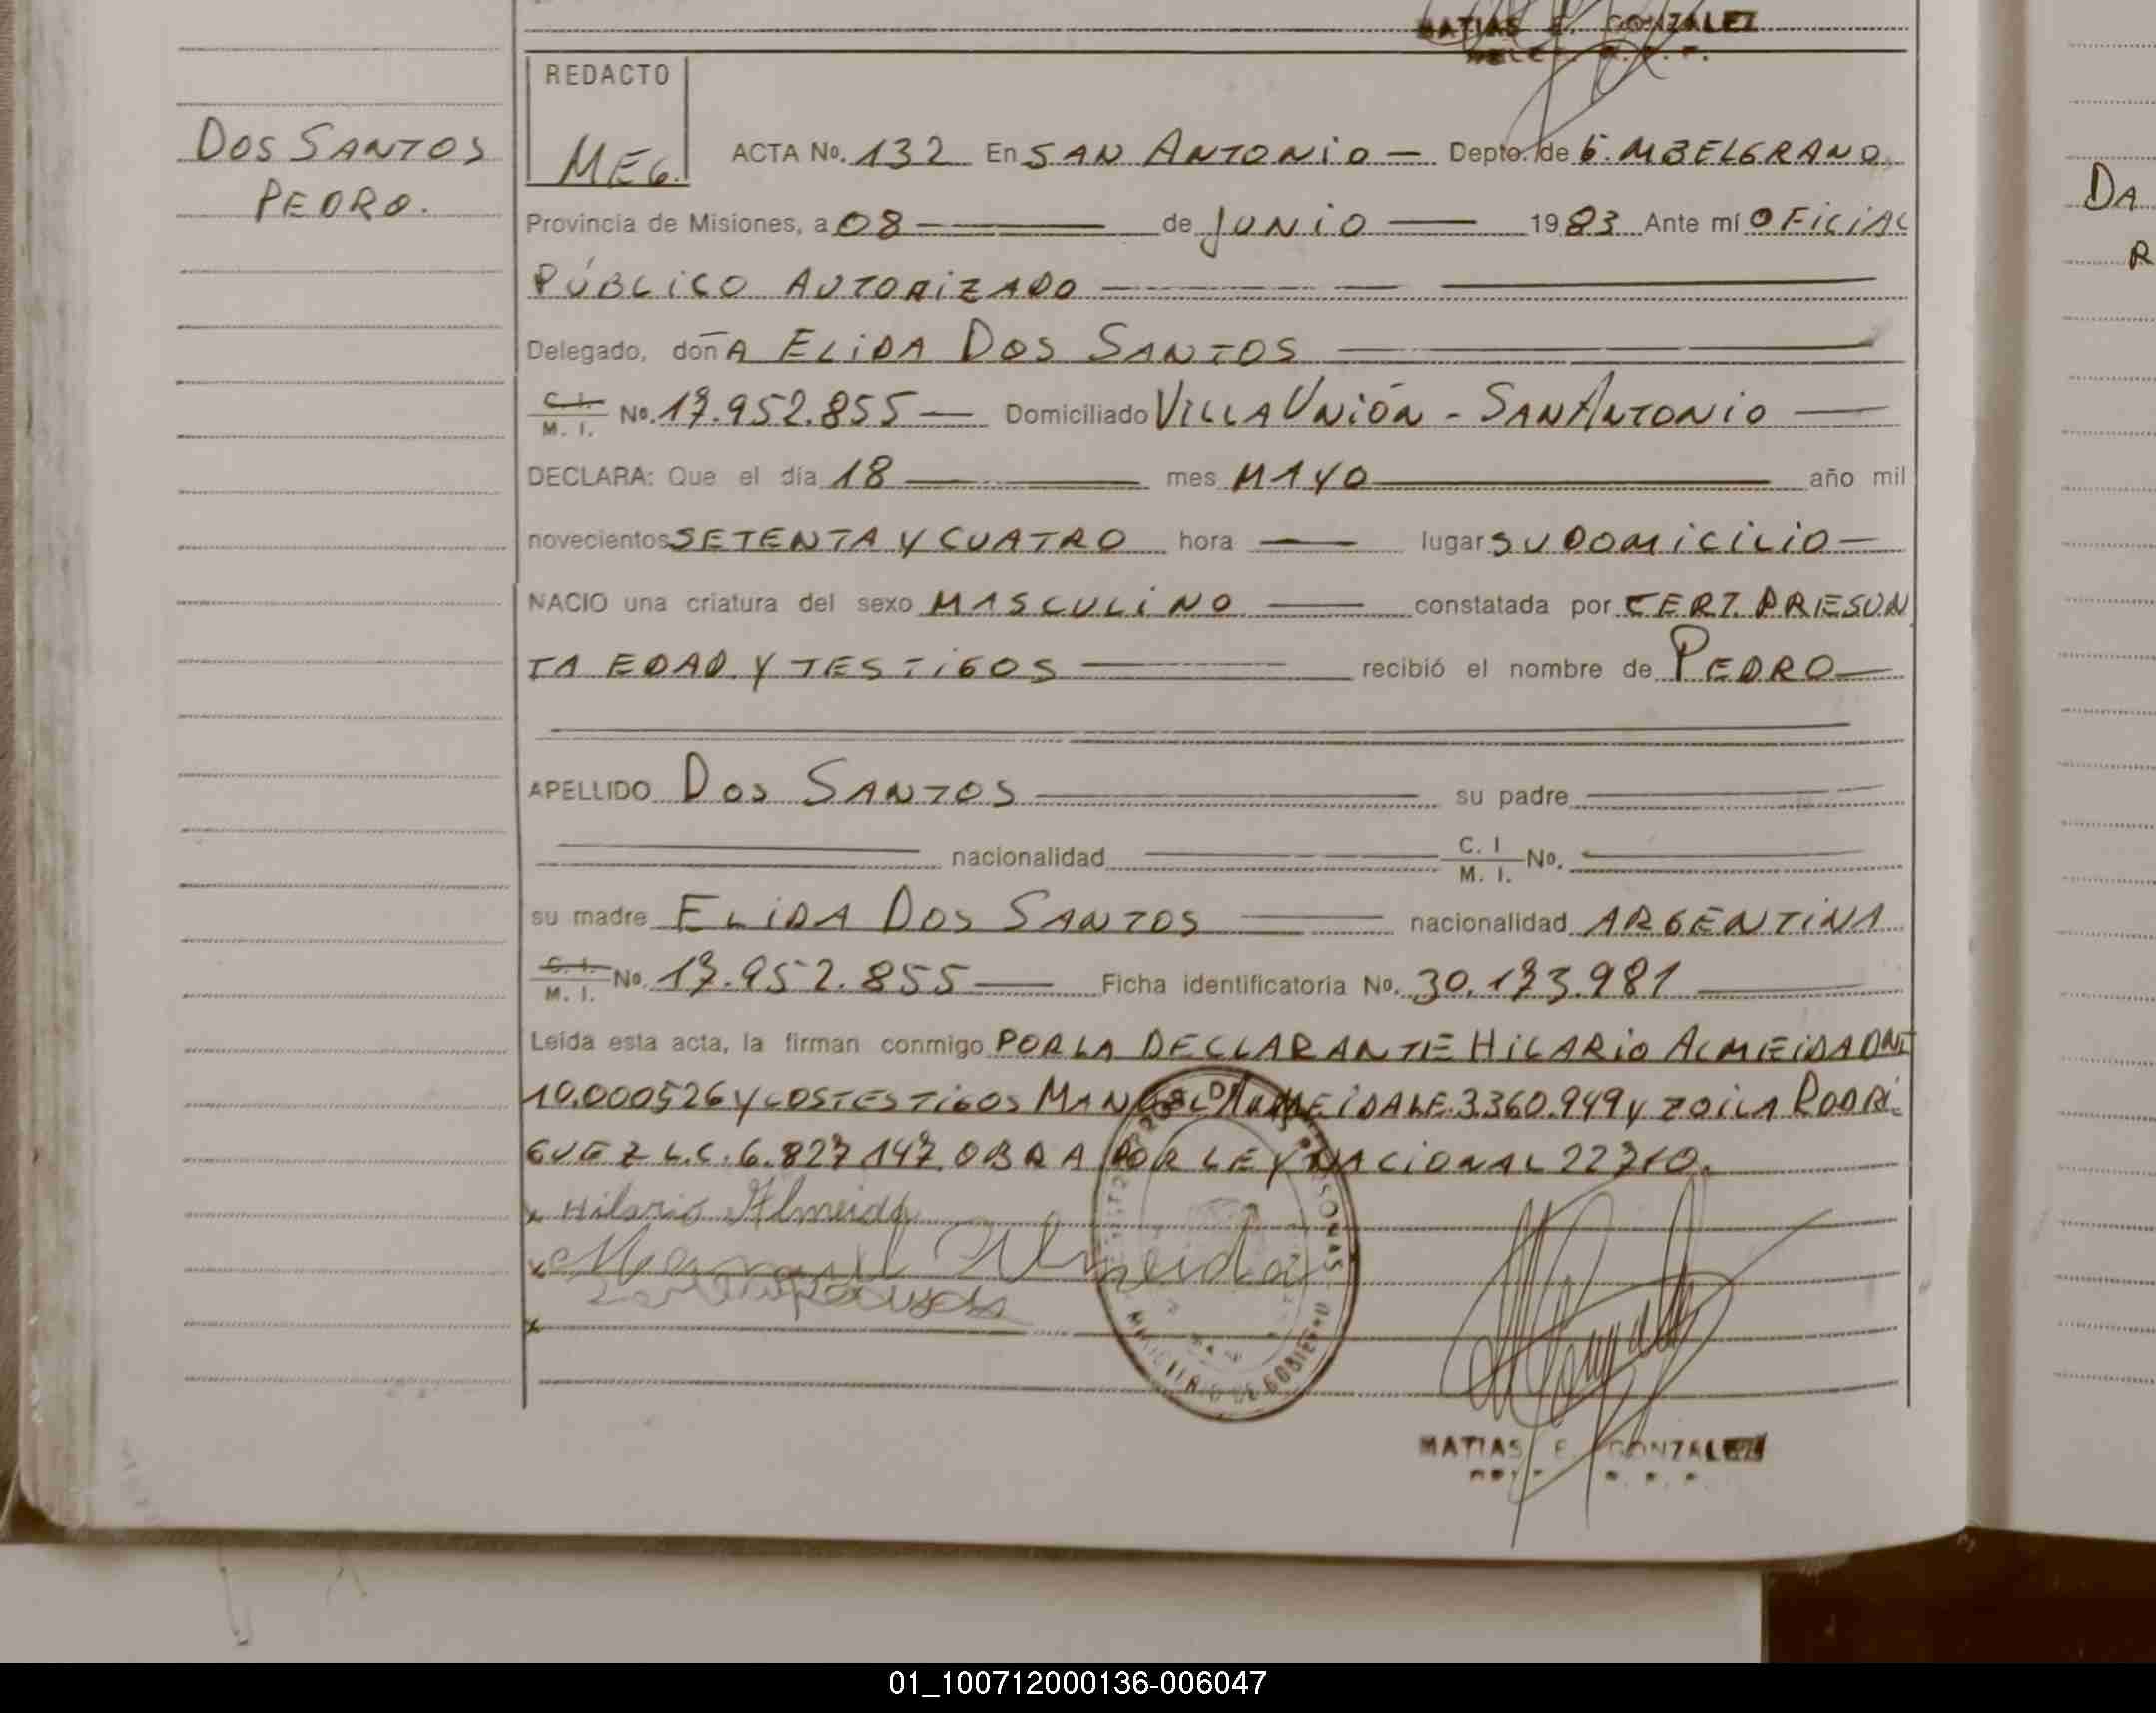 MATIAS E. GONZALEZ
REDACTO
DOS SANTOS
PEDRO.
MEG.
ACTA No. 132 En SAN ANTONIO — Depto. de G. M BELGRANO
Provincia de Misiones, a 08 — de JUNIO — 1983 Ante mí OFICIAL
PÚBLICO AUTORIZADO —
Delegado, doñA ELIDA DOS SANTOS —
C. I. / M. I. No. 17.952.855 — Domiciliado VILLA UNIÓN - SAN ANTONIO —
DECLARA: Que el día 18 — mes MAYO — año mil
novecientos SETENTA Y CUATRO hora — lugar SU DOMICILIO —
NACIO una criatura del sexo MASCULINO — constatada por CERT. PRESUN
TA EDAD Y TESTIGOS — recibió el nombre de PEDRO —
APELLIDO DOS SANTOS — su padre —
— nacionalidad — C. I / M. I. No. —
su madre ELIDA DOS SANTOS — nacionalidad ARGENTINA
C. I. / M. I. No. 17.952.855 — Ficha identificatoria No. 30.173.981 —
Leída esta acta, la firman conmigo POR LA DECLARANTE HILARIO ALMEIDA DNI
10.000526 Y LOS TESTIGOS MANUEL ALMEIDA LE. 3360.949 Y ZOILA RODRI
GUEZ L.C. 6.827147. OBRA POR LEY NACIONAL 22710.
x Hilario Almeida
x Manuel Almeida
x
PERSONAS
MINISTERIO DE GOBIERNO
MATIAS E. GONZALEZ
DA
R
01_100712000136-006047